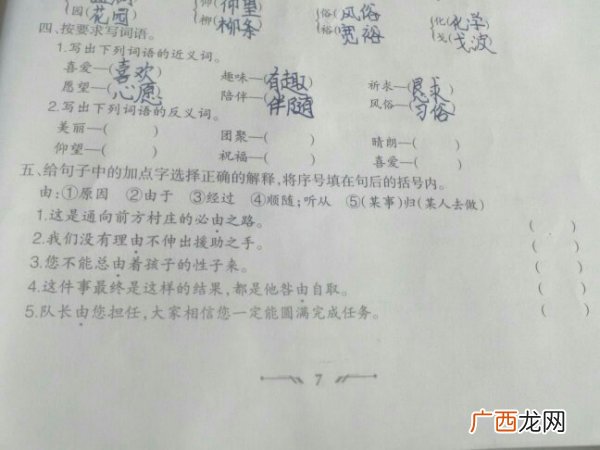 园(花园) 仰(仰望) 俗(风俗) 化(化学)
柳(柳条) 裕(宽裕) 戈(戈波)
四、按要求写词语。
1.写出下列词语的近义词。
喜爱—(喜欢) 趣味—(有趣) 祈求—(恳求)
愿望—(心愿) 陪伴—(伴随) 风俗—(习俗)
2.写出下列词语的反义词。
美丽—( ) 团聚—( ) 晴朗—( )
仰望—( ) 祝福—( ) 喜爱—( )
五、给句子中的加点字选择正确的解释,将序号填在句后的括号内。
由:①原因 ②由于 ③经过 ④顺随;听从 ⑤(某事)归(某人去做)
1.这是通向前方村庄的必由之路。 ( )
2.我们没有理由不伸出援助之手。 ( )
3.您不能总由着孩子的性子来。 ( )
4.这件事最终是这样的结果,都是他咎由自取。 ( )
5.队长由您担任,大家相信您一定能圆满完成任务。 ( )
7
广西龙网